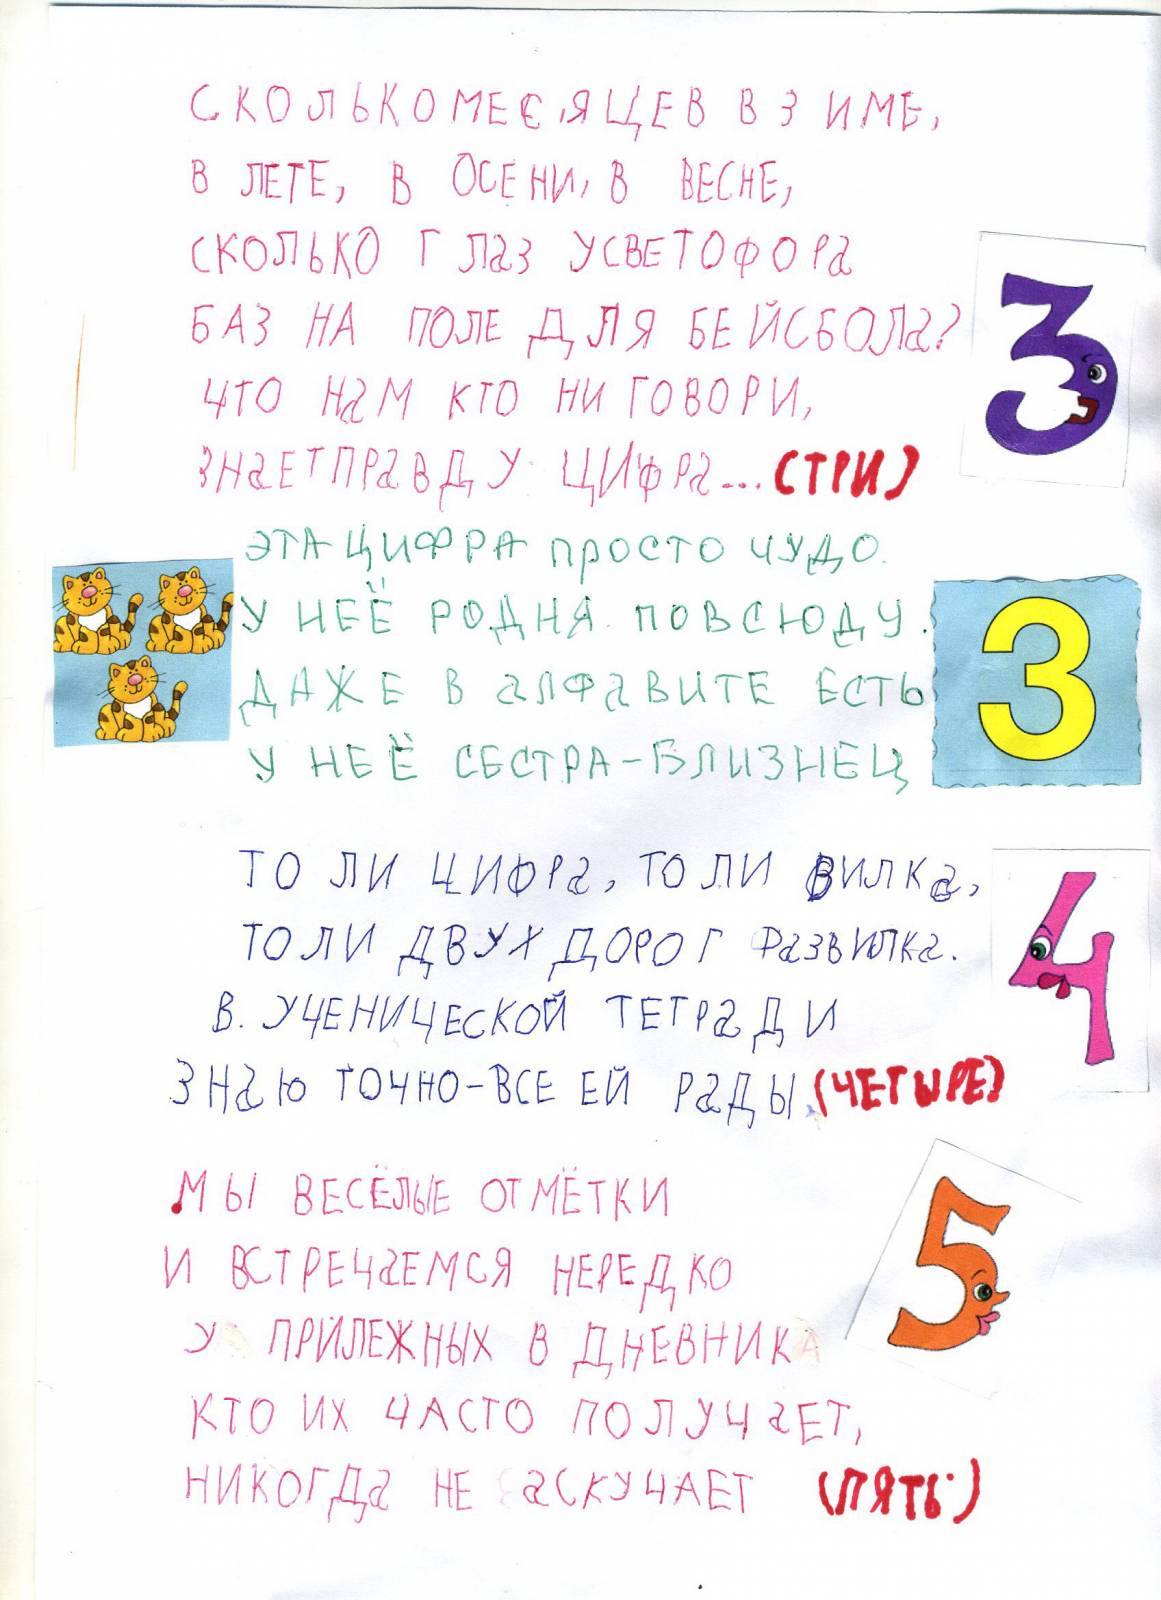 СКОЛЬКОМЕСЯЦЕВ В ЗИМЕ,
В ЛЕТЕ, В ОСЕНИ, В ВЕСНЕ,
СКОЛЬКО ГЛаЗ УСВЕТОФОРа
БАЗ НА ПОЛЕ ДЛЯ БЕЙСБОЛа?
ЧТО НаМ КТО НИ ГОВОРИ,
ЗНаЕТПРаВДУ ЦИФРа...(ТРИ)
3
ЭТАЦИФРА ПРОСТО ЧУДО.
У НЕЁ РОДНЯ ПОВСЮДУ.
ДАЖЕ В аЛФаВИТЕ ЕСТЬ
У НЕЁ СЕСТРА-БЛИЗНЕЦ
3
ТО ЛИ ЦИФРа, ТО ЛИ ВИЛКа,
ТО ЛИ ДВУХ ДОРОГ РаЗВИЛКа.
В. УЧЕНИЧЕСКОЙ ТЕТРаДИ
ЗНаЮ ТОЧНО-ВСЕ ЕЙ РаДЫ.(ЧЕТЫРЕ)
4
МЫ ВЕСЁЛЫЕ ОТМЁТКИ
И ВСТРЕЧаЕМСЯ НЕРЕДКО
У ПРИЛЕЖНЫХ В ДНЕВНИКА
КТО ИХ ЧАСТО ПОЛУЧаЕТ,
НИКОГДа НЕ аСКУЧАЕТ (ПЯТЬ)
5